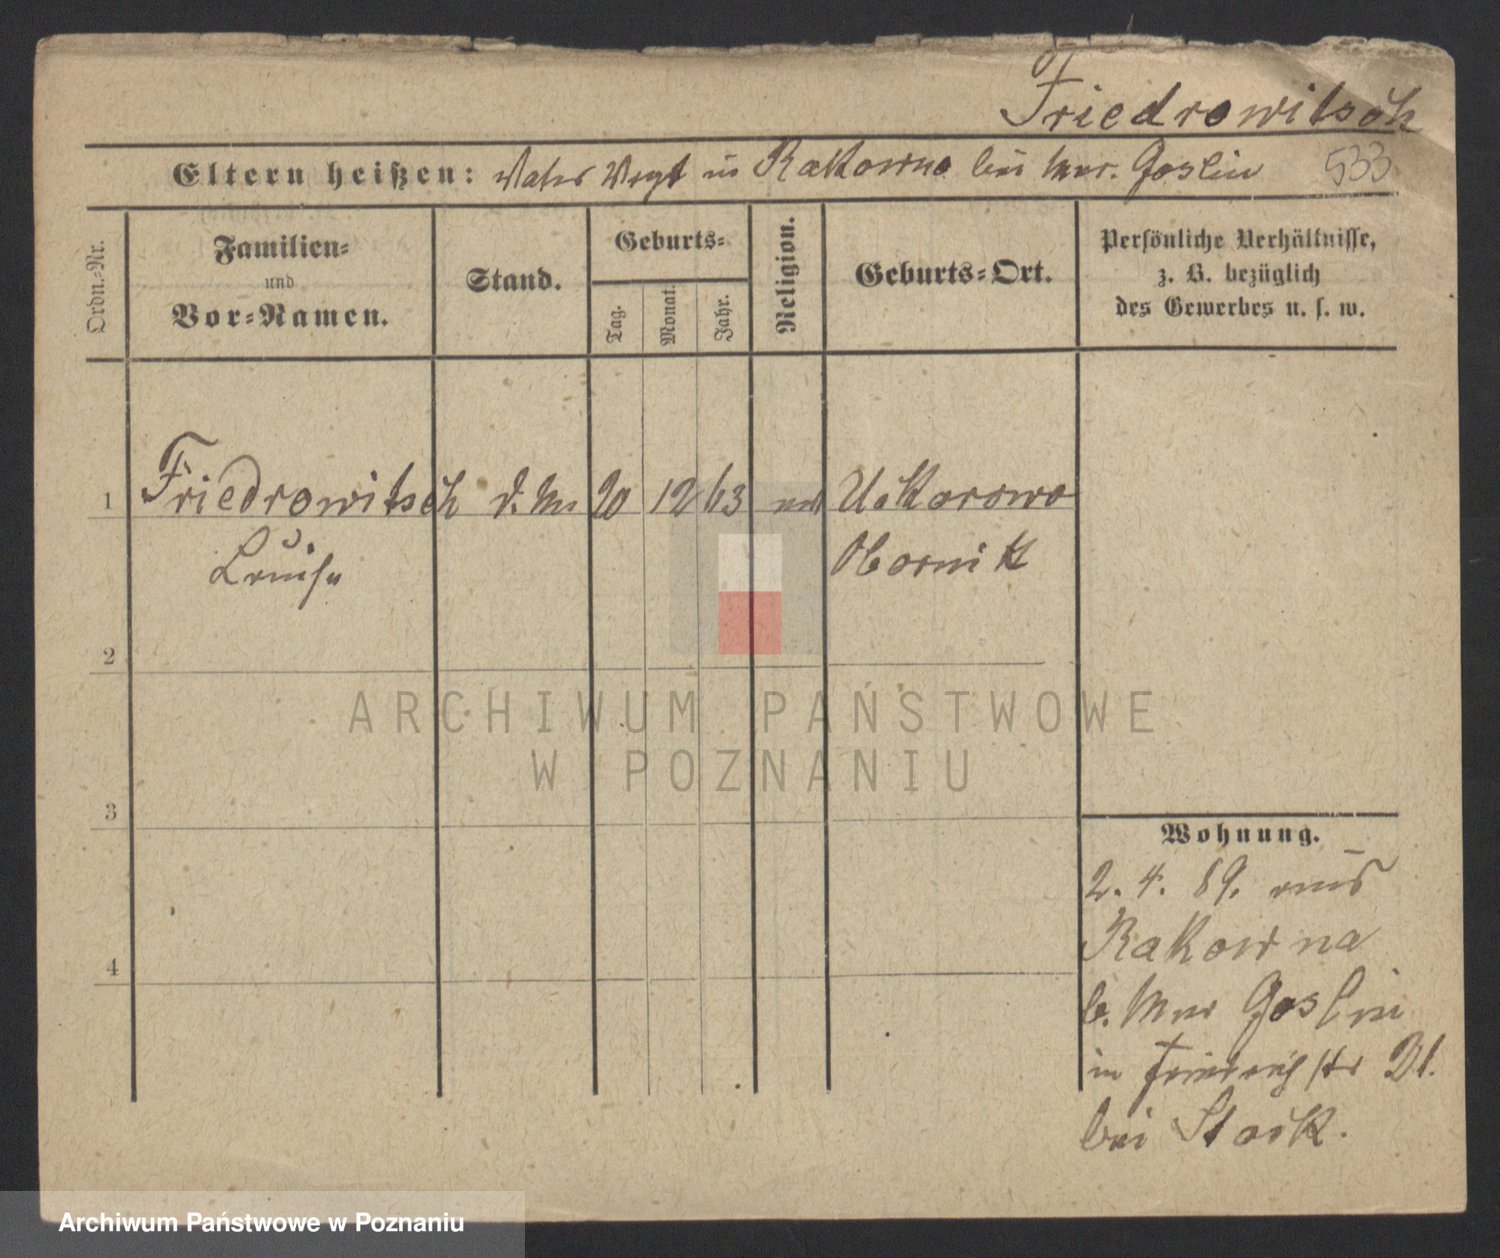 Friedrowitsch
Eltern heißen: Vater Vogt in Rakowna bei Mur. Goslin 533
Ordn.-Nr.
Familien-
und
Vor-Namen.
Stand.
Geburts-
Tag.
Monat.
Jahr.
Religion.
Geburts-Ort.
Persönliche Verhältnisse,
z. B. bezüglich
des Gewerbes u. s. w.
1 Friedrowitsch 20 12 63
Louise Obornik
2
3
4
Wohnung.
2. 4. 89. aus
Rakowna
b. Mur Goslin
in
bei
ARCHIWUM PAŃSTWOWE
W POZNANIU
Archiwum Państwowe w Poznaniu